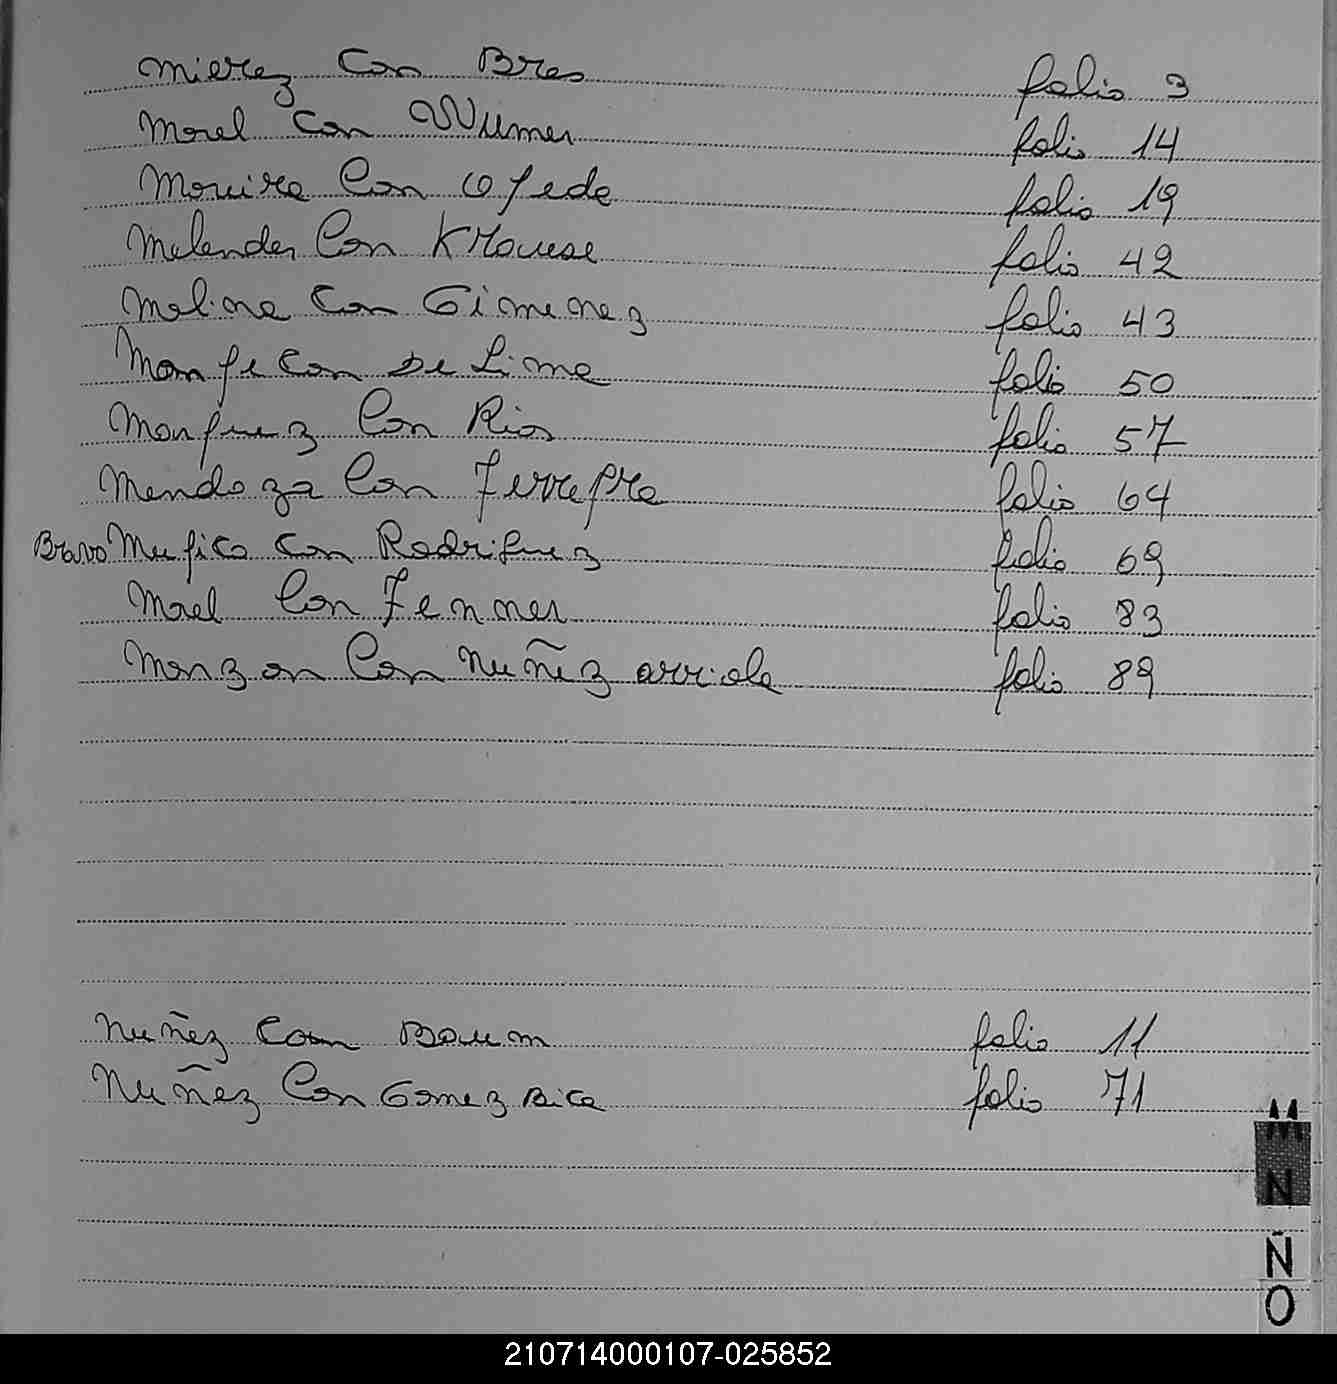 Mierez Con Bres folio 3
Morel Con Wumer folio 14
Moreira Con Ojeda folio 19
Melender Con Krause folio 42
Molina Con Gimenez folio 43
Monge Con De Lima folio 50
Con Rios folio 57
Mendoza Con Ferreyra folio 64
Bravo Mugica Con Rodriguez folio 69
Morel Con Fenner folio 83
Monzon Con Nuñez arriola folio 89
Nuñez Con Baum folio 11
Nuñez Con Gomez folio 71
M
N
Ñ
O
210714000107-025852